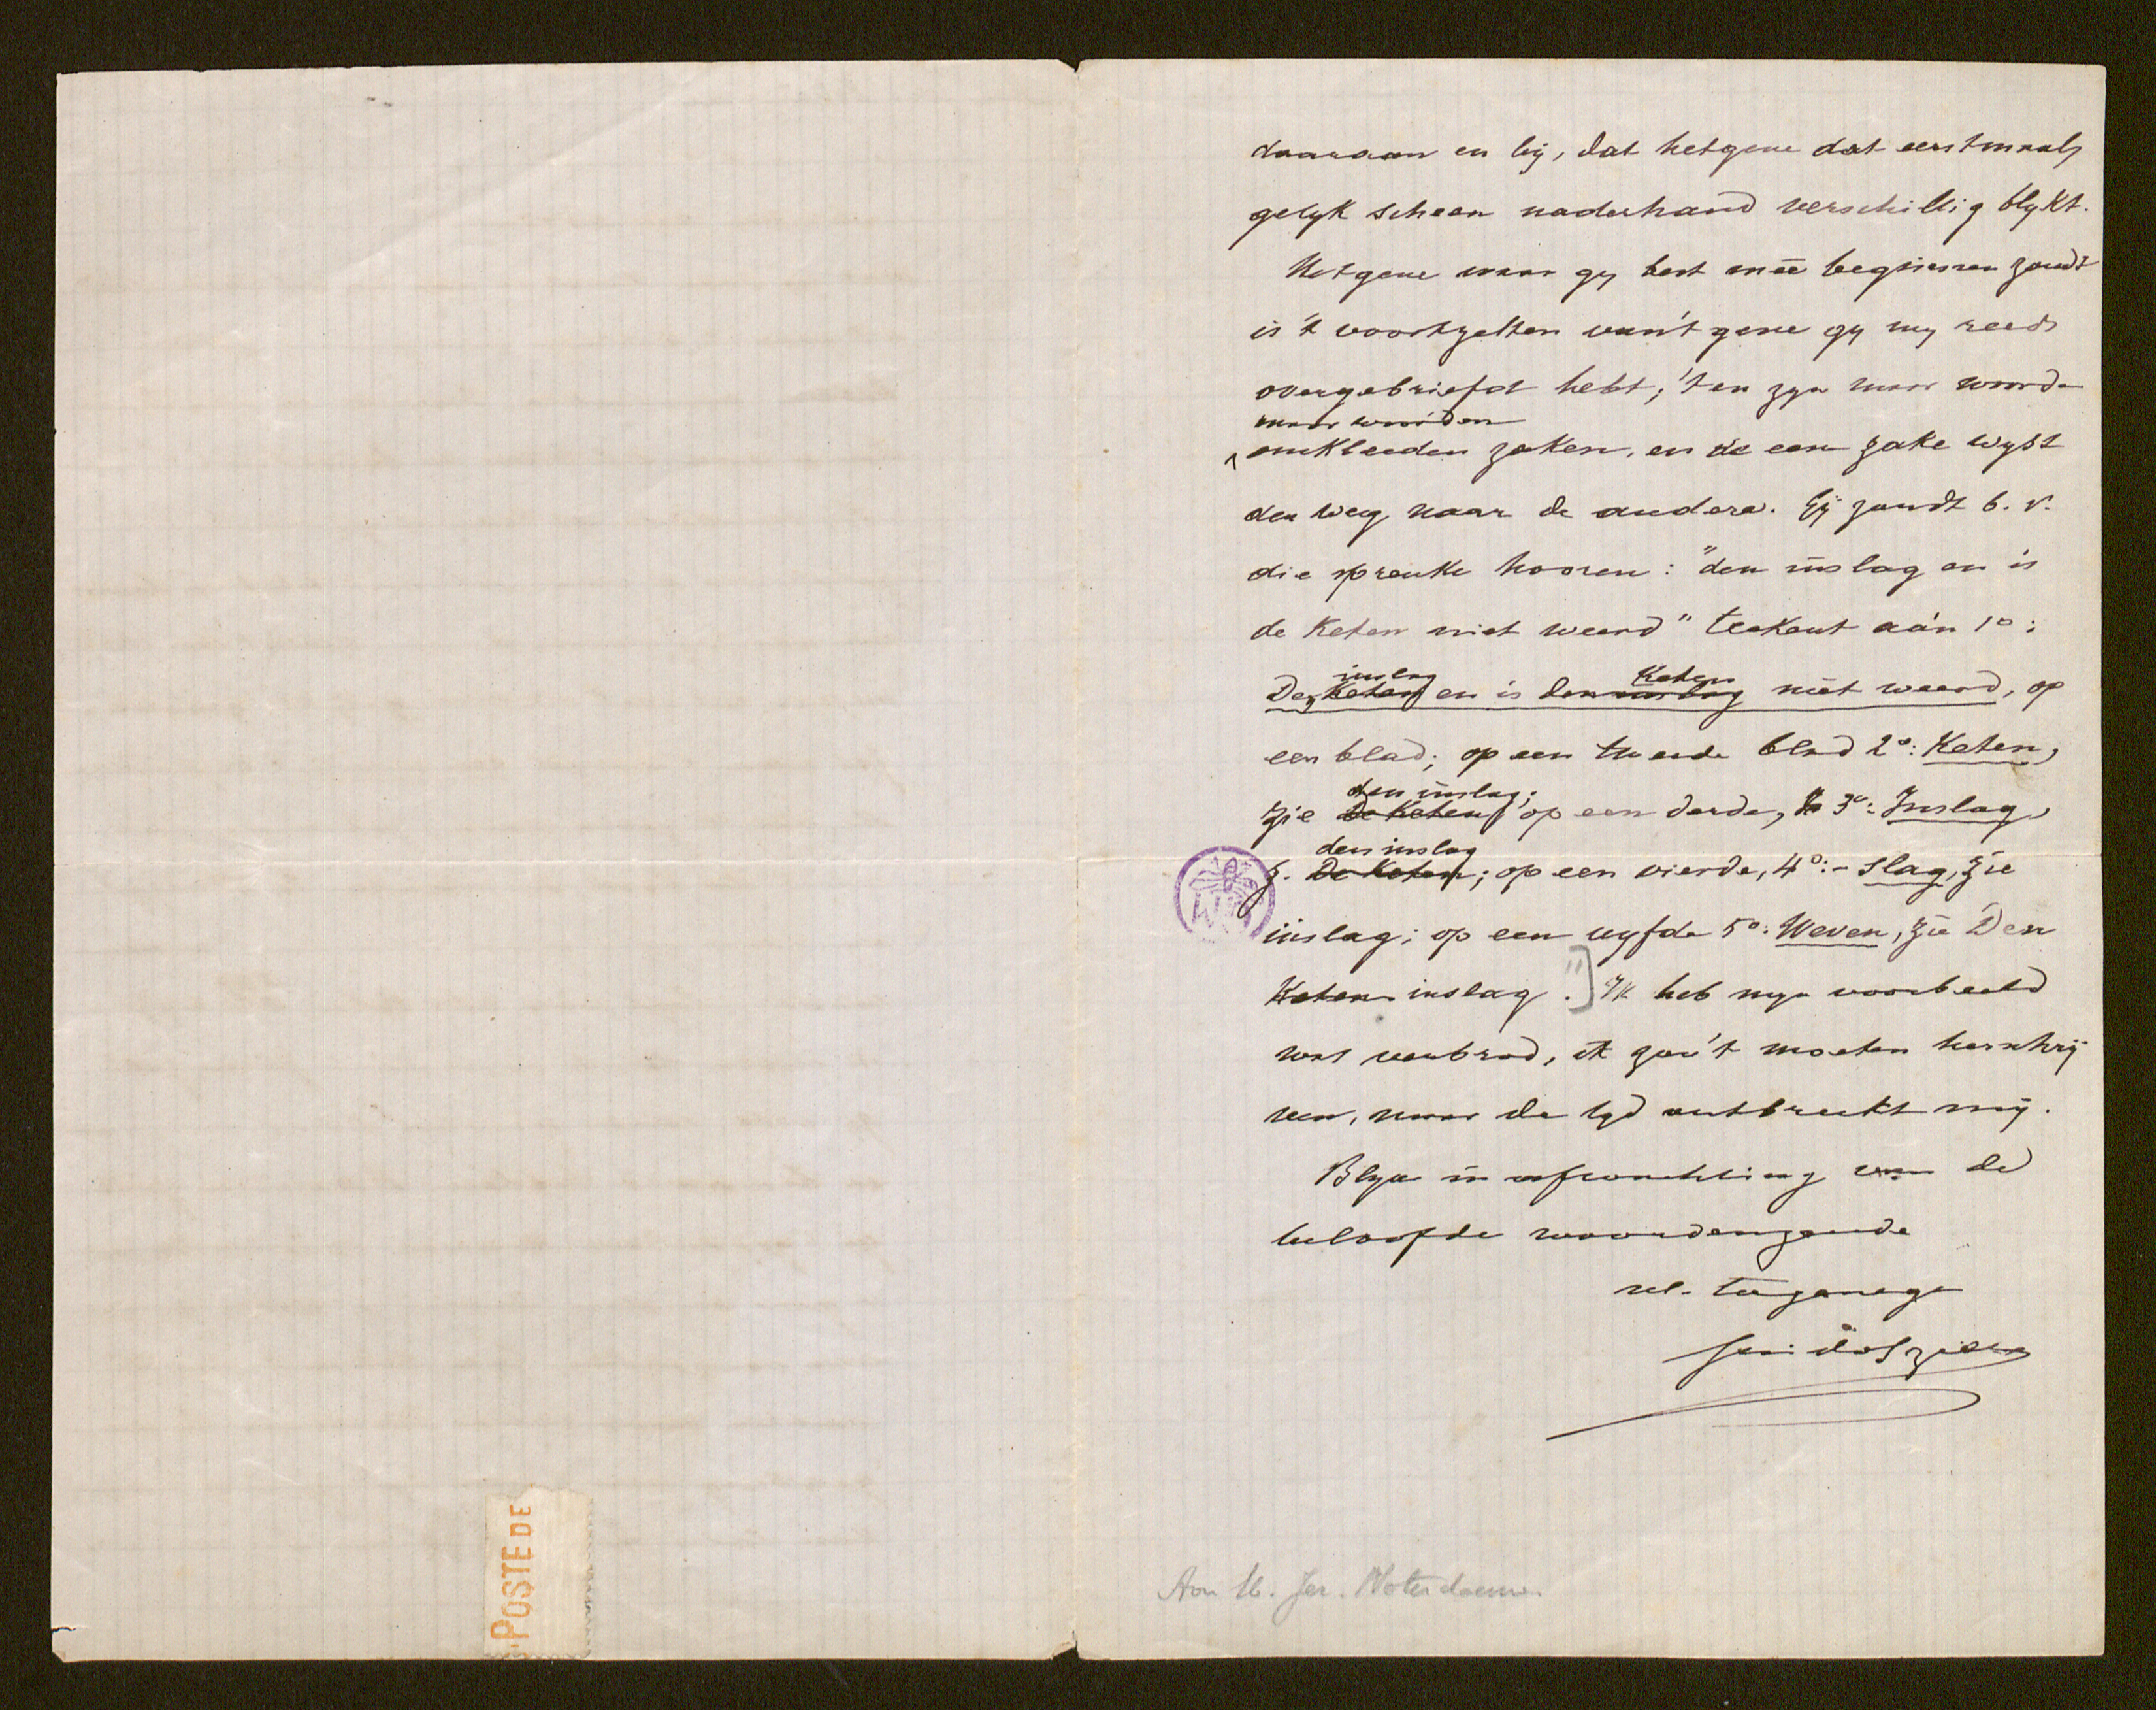 daaraan en by, dat hetgene dat eerstmaals
gelyk scheen naderhand verschillig blykt.
Hetgene waar gy best meê beginnen zoudt
is 't voortzetten van 't gene gy my reeds
overgebriefd hebt; 't en zyn maar woorde
maar woorden
omkleeden zaken, en de eene zake wyst
den weg naar de andere. Gy zoudt b. v.
die spreuke hooren: "den inslag en is
de keten niet weerd" teekent aan 1°:
inslag Keten
Den Keten en is den inslag niet weerd, op
een blad; op een tweede blad 2°: Keten,
den inslag;
zie De Keten; op een derde, 3°: Inslag,
den inslag
z. De Keten; op een vierde, 4°:- slag, zie
inslag; op een vyfde 5°: Weven, zie Den
Keten inslag ."] Ik heb myn voorbeeld
wat verbrod, ik zou 't moeten herschry
ven, maar de tyd ontbreekt my.
Blyve in afwachting van de
beloofde woordenzende
toegenege
Guido Gezelle
Aan M. Jer. Noterdaeme.
POSTE DE